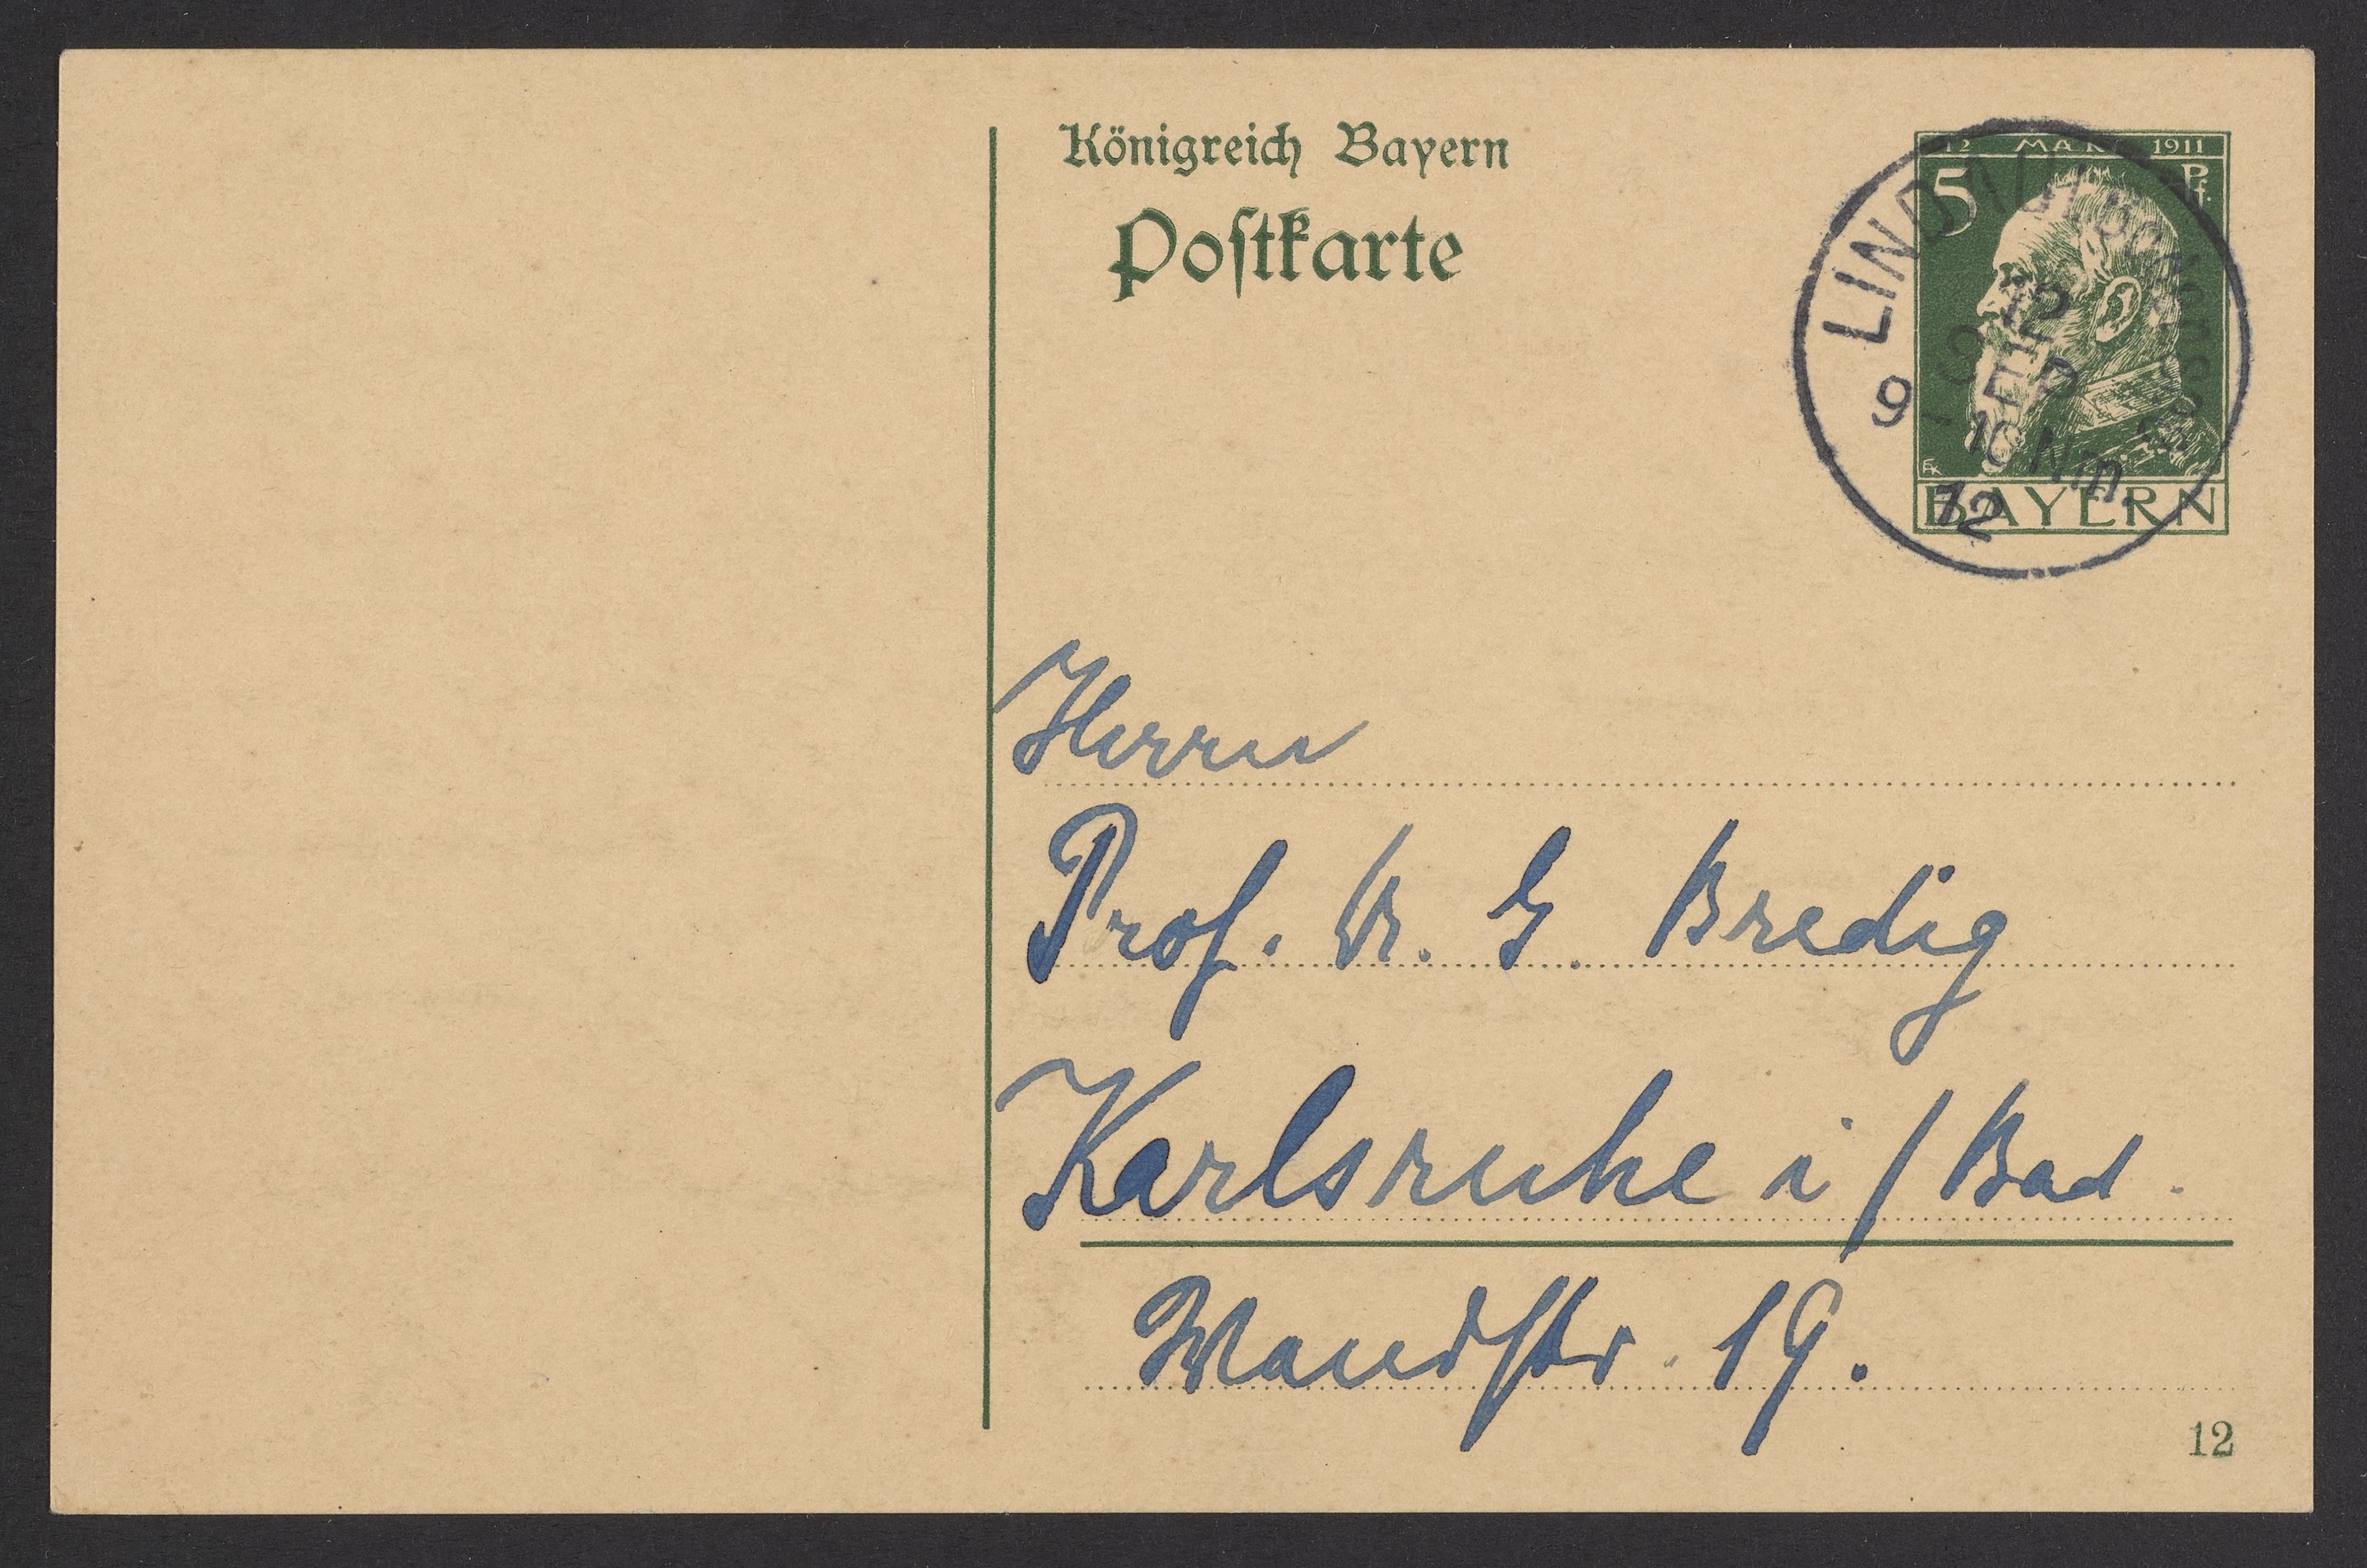 Königreich Bayern
Postkarte
12 MÄRZ 1911
5 Pf.
BAYERN
LINDAU
12
SEP
9-10 Nm.
12
Herrn
Prof. Dr. G. Bredig
Karlsruhe i/Bad.
Wandstr. 19.
12